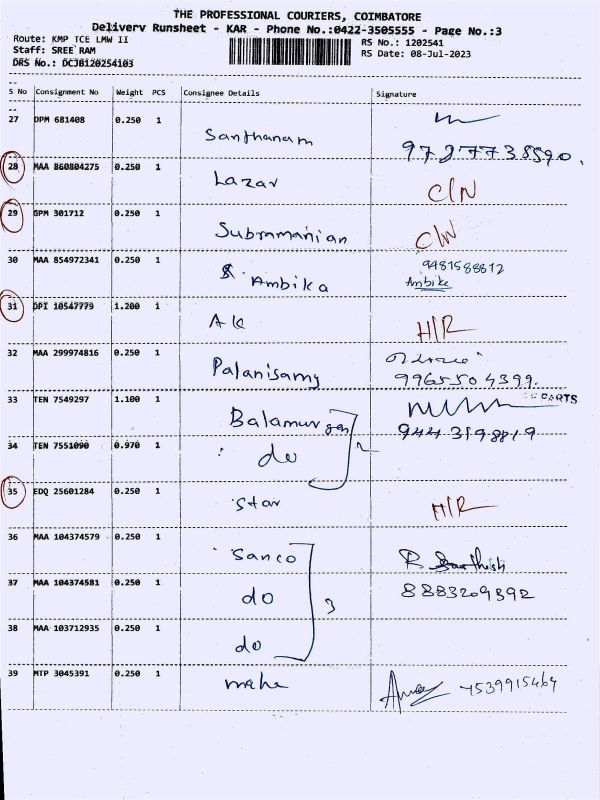 THE PROFESSIONAL COURIERS, COIMBATORE
Delivery Runsheet - KAR - Phone No.:0422-3505555 - Page No.:3
Route: KMP TCE LMW II
RS No.: 1202541
Staff: SREE RAM
RS Date: 08-Jul-2023
DRS No.: DCJB120254103
S No Consignment No Weight PCS Consignee Details Signature
27 DPM 681408 0.250 1 Santhanam
28 MAA 860804275 0.250 1 Lazar C/N
29 GPM 301712 0.250 1 Subramanian C/N
30 MAA 854972341 0.250 1 Ambika 9481588812
Ambika
31 DPI 10547779 1.200 1 AK H/R
32 MAA 299974816 0.250 1 Palanisamy
9965504399.
33 TEN 7549297 1.100 1 Balamurgan PARTS
34 TEN 7551090 0.970 1 do 2
35 EDQ 25601284 0.250 1 Star H/R
36 MAA 104374579 0.250 1 Sanco R
37 MAA 104374581 0.250 1 do 3 8883209392
38 MAA 103712935 0.250 1 do
39 MTP 3045391 0.250 1 mahe 7539915464